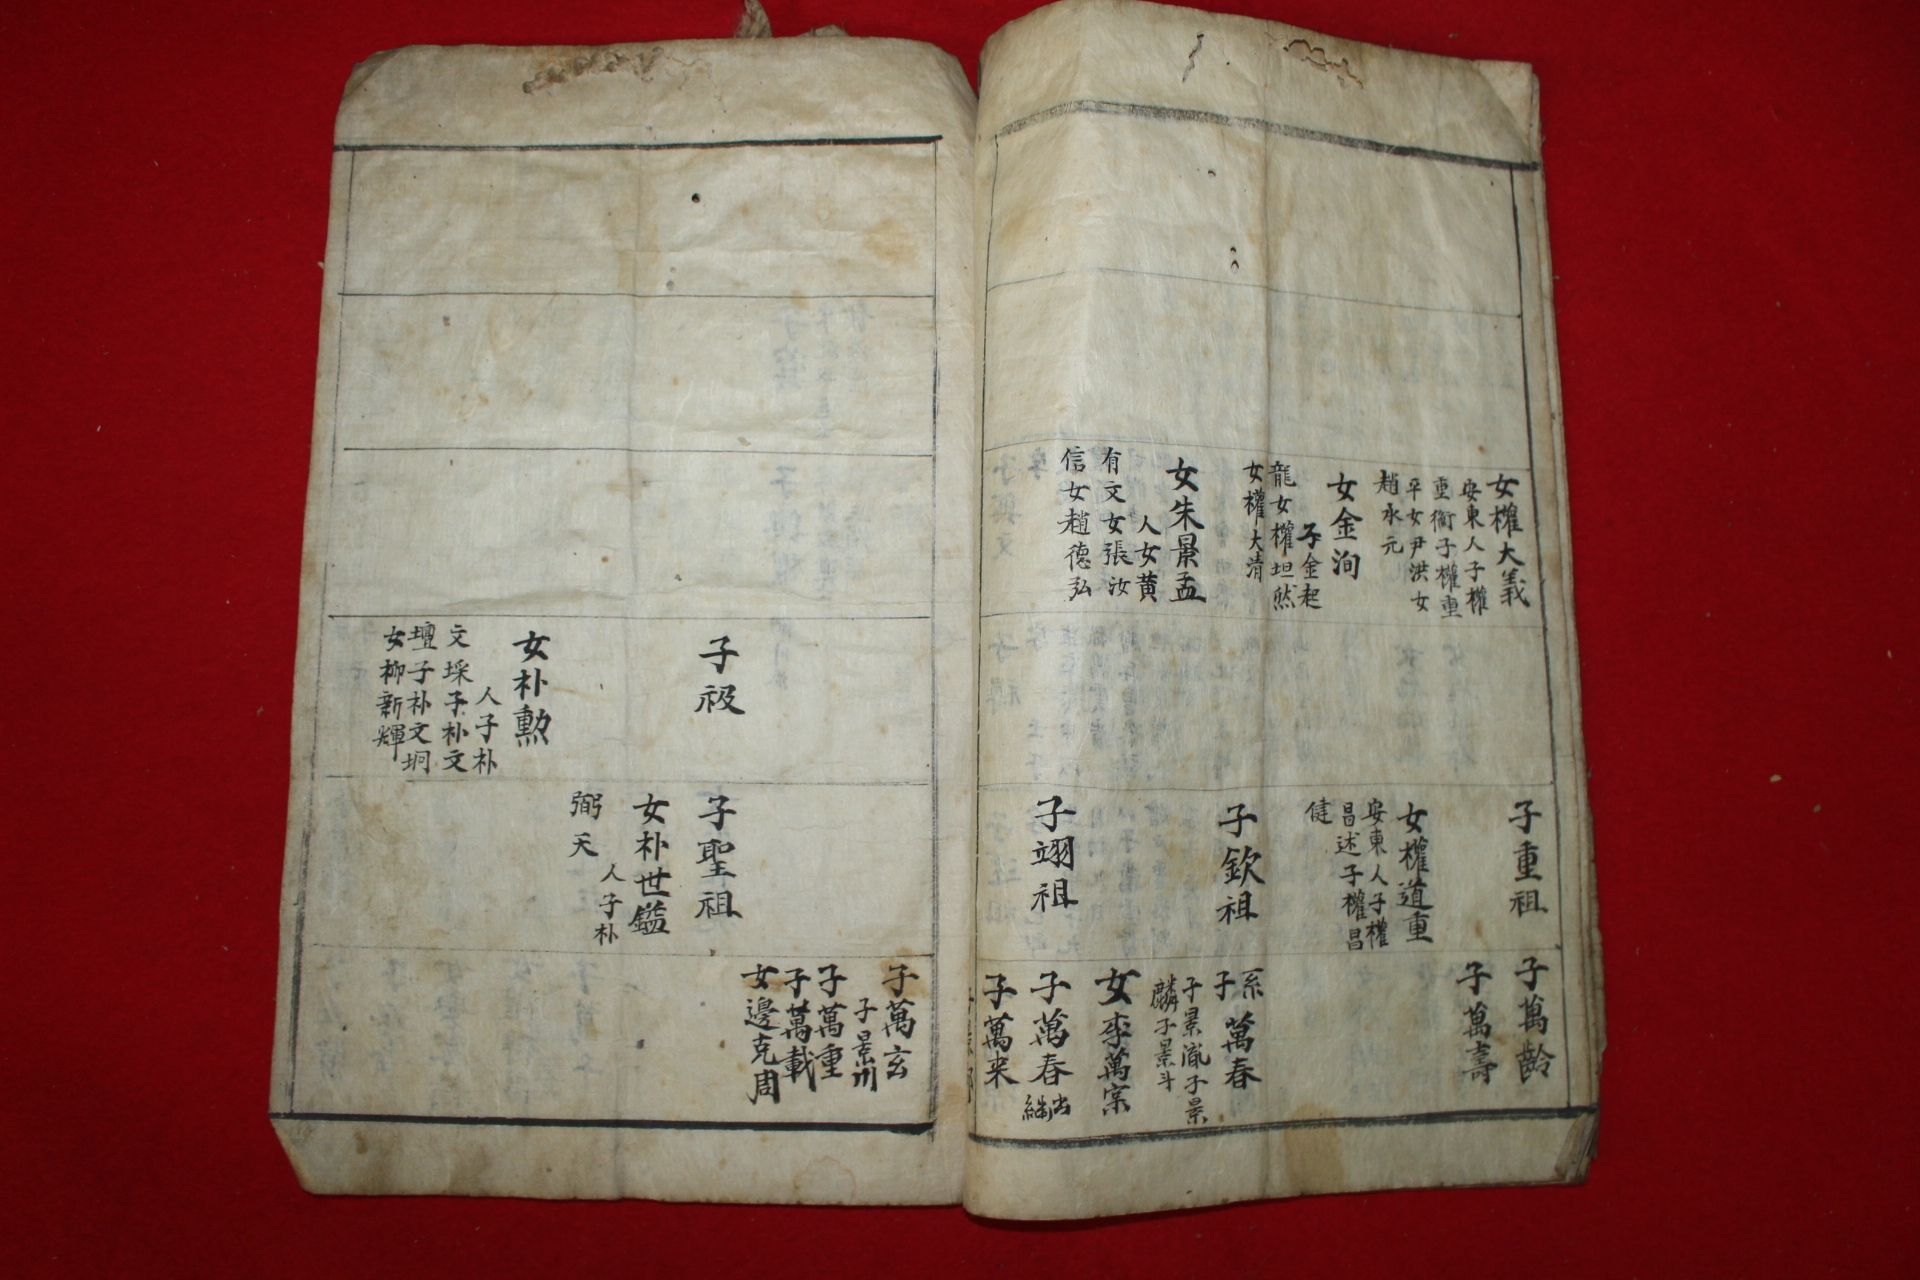 女權大義
安東人子權
重衡子權重
平女尹洪女
趙永元
女金洵
子金起
龍女權坦然
女權大清
女朱景孟
人女黃
有文女張汝
信女趙德弘
子重祖
女權道重
安東人子權
昌述子權昌
健
子欽祖
子翊祖
子萬齡
子萬壽
子萬春
系
子景胤子景
麟子景斗
女李萬宗
子萬春
出
子萬来
子祋
女朴勲
人子朴
文埰子朴文
壇子朴文坰
女柳新輝
子聖祖
女朴世鎰
人子朴
弼天
子萬玄
子景川
子萬重
子萬載
女邊克周